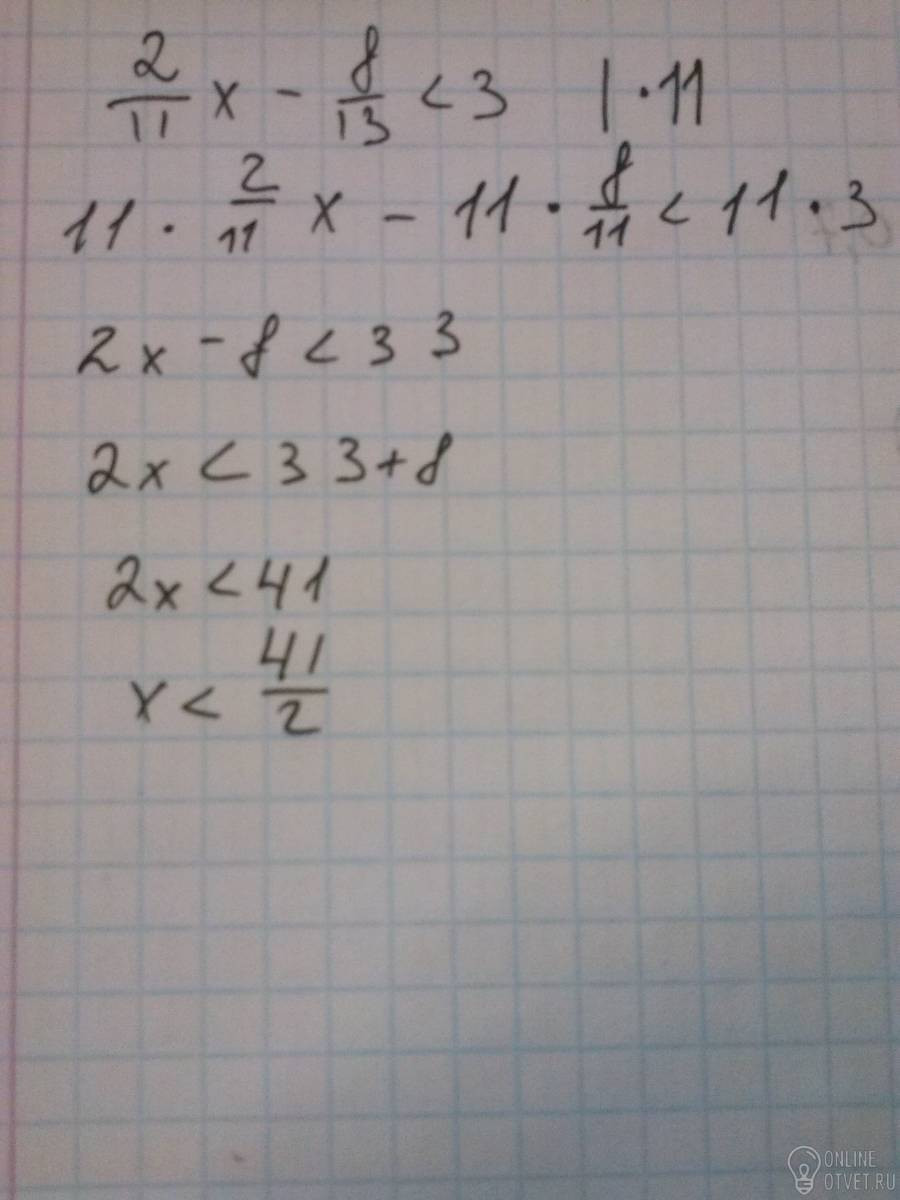 2/11 x - 8/13 < 3 | · 11
11 · 2/11 x - 11 · 8/11 < 11 · 3
2x - 8 < 33
2x < 33 + 8
2x < 41
x < 41/2
ONLINE
OTVET.RU